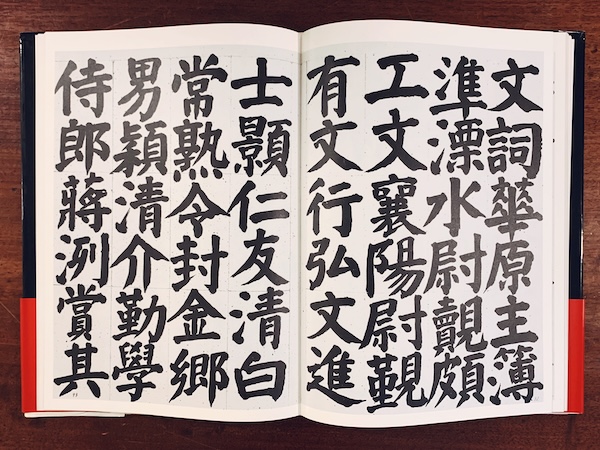 文詞華原主簿
準溧水尉覿頗
工文襄陽尉覲
有文行弘文進
士顥仁友清白
常熟令封金鄉
男穎清介勤學
侍郎蔣洌賞其